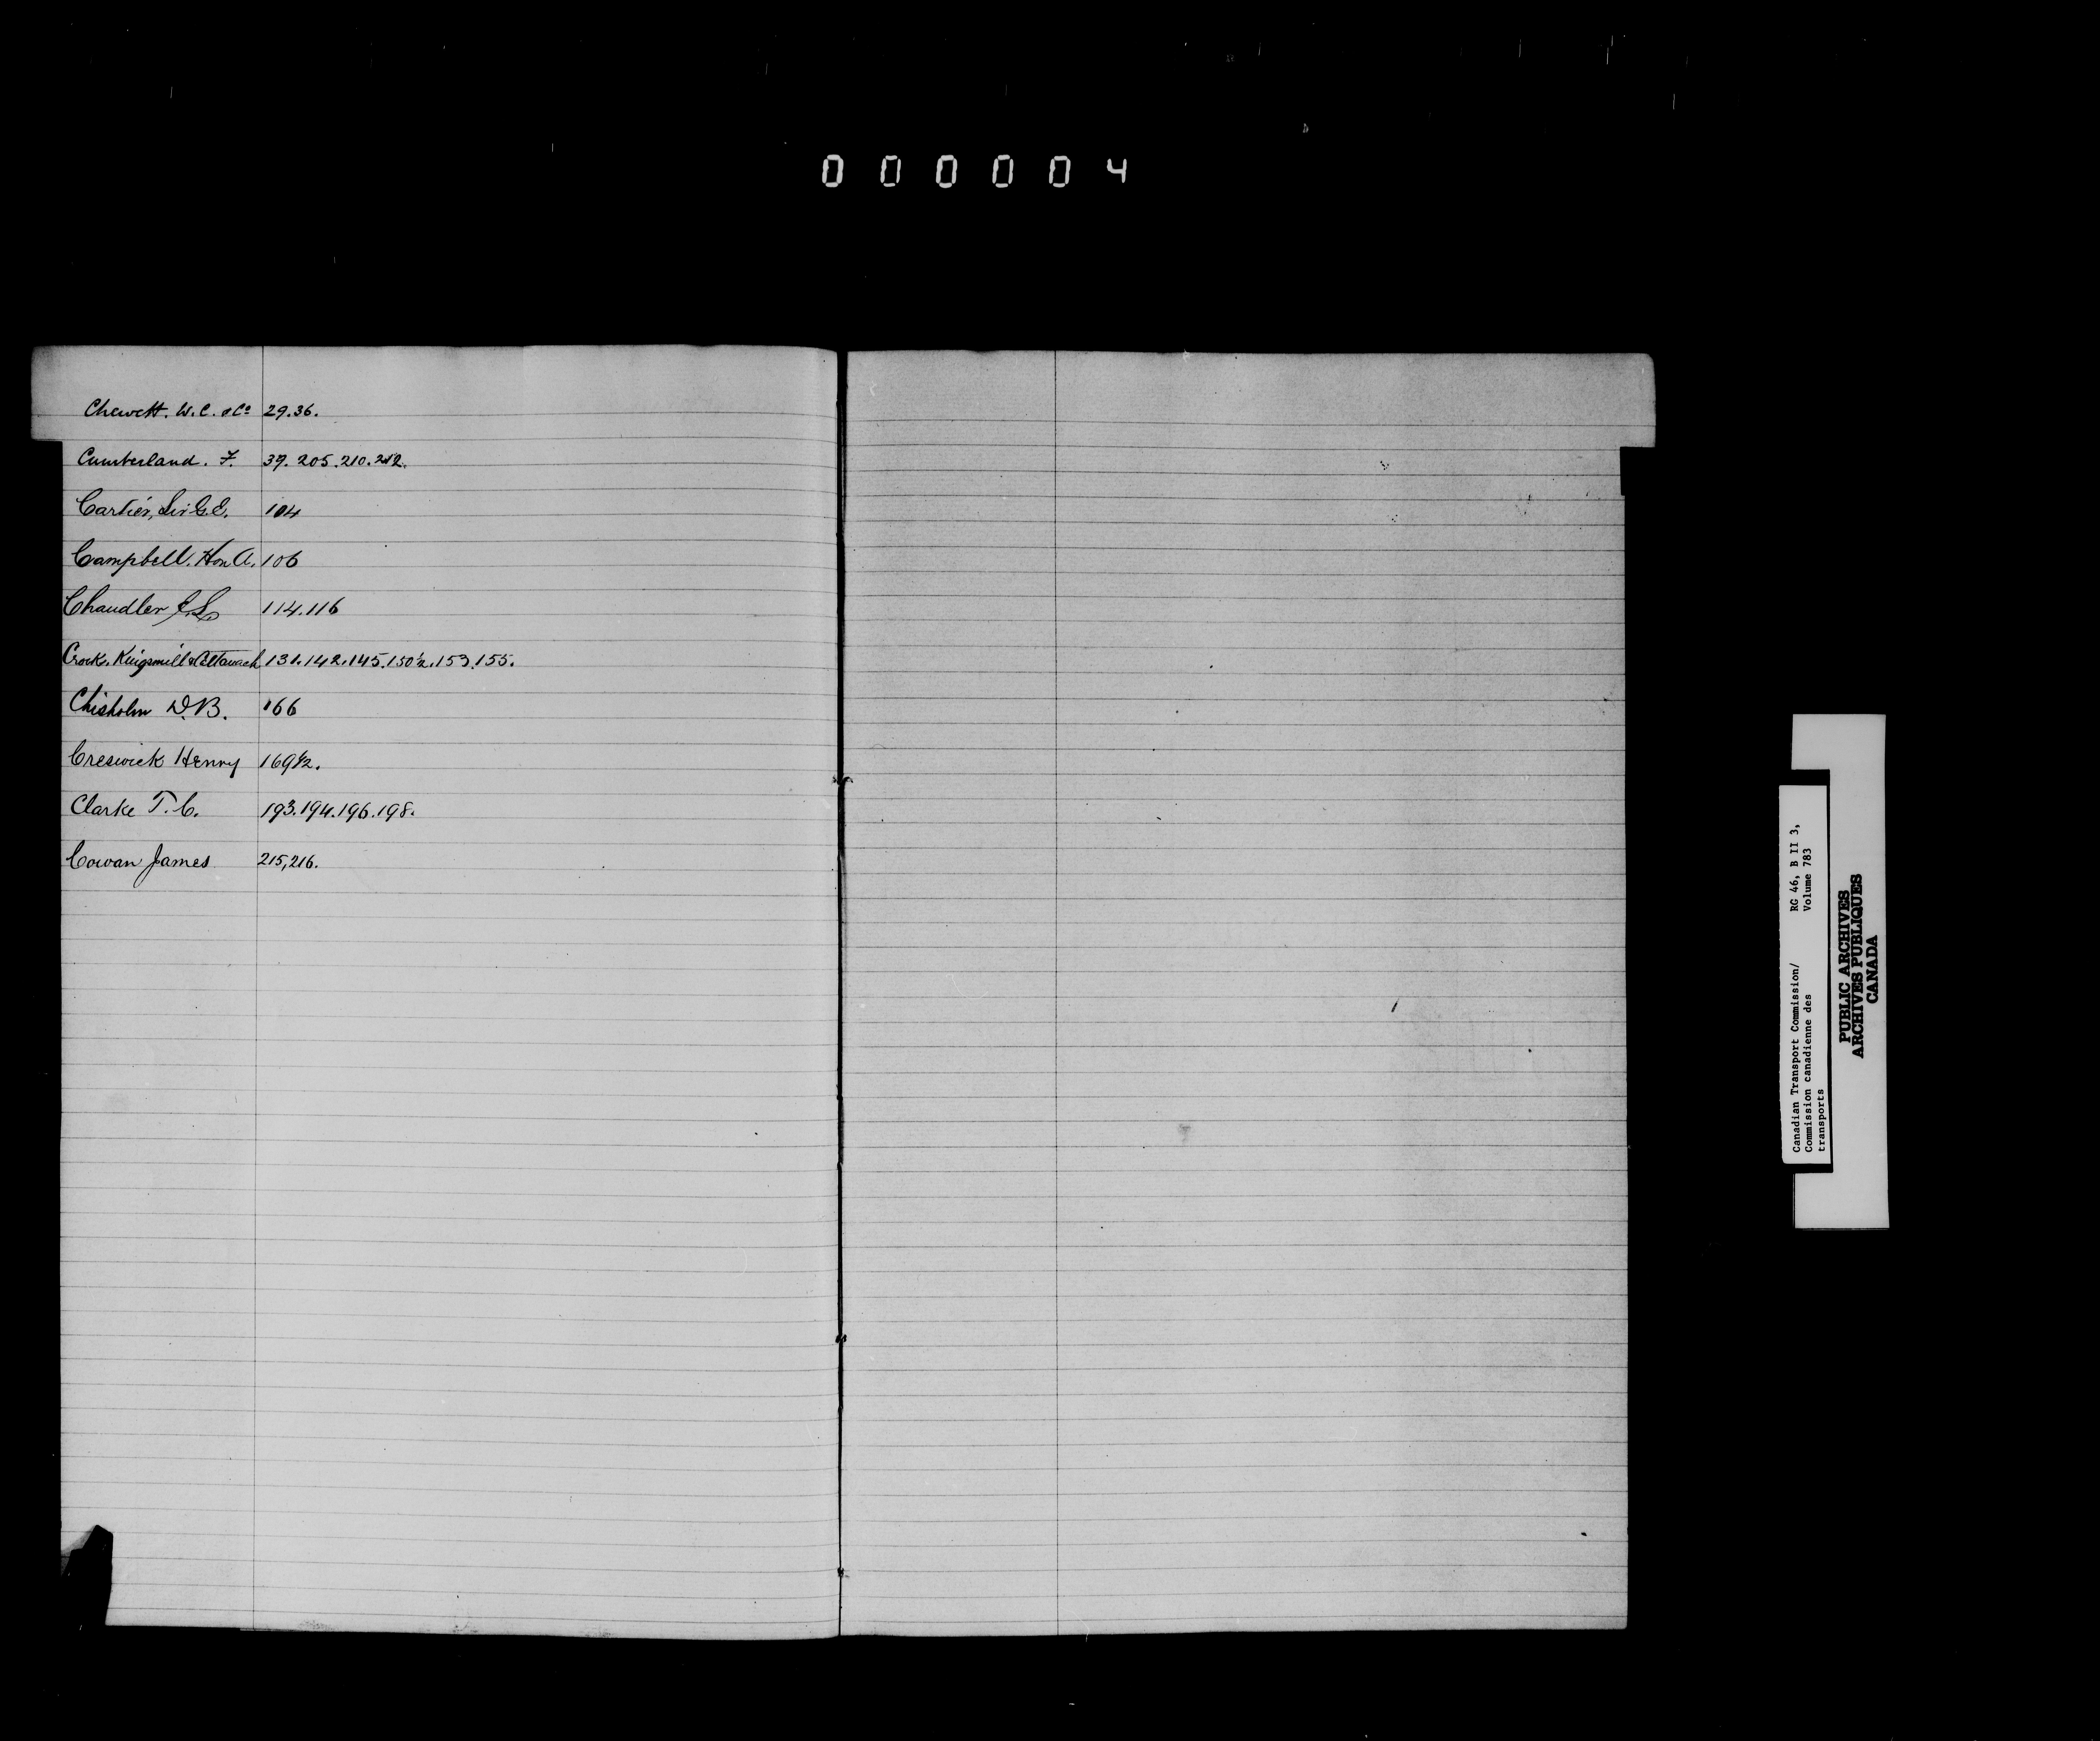 000004
Chewett. W. C. & Co 29.36.
Cumberland. F. 39. 205. 210. 212.
Cartier, Sir G.E. 104
Campbell. Hon A. 106
Chandler 114.116
Crook, Kingsmill & Cattanach 131.142.145.150½.153.155.
Chisholm D.B. 166
Creswick Henry 169½.
Clarke T. C. 193.194.196.198.
Cowan James 215,216.
Canadian Transport Commission/ RG 46, B II 3,
Commission canadienne des Volume 783
transports
PUBLIC ARCHIVES
ARCHIVES PUBLIQUES
CANADA